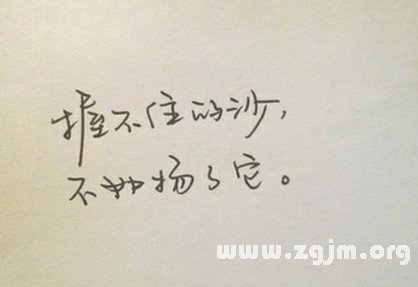 握不住的沙，
不如扬了它。
www.zgjm.org